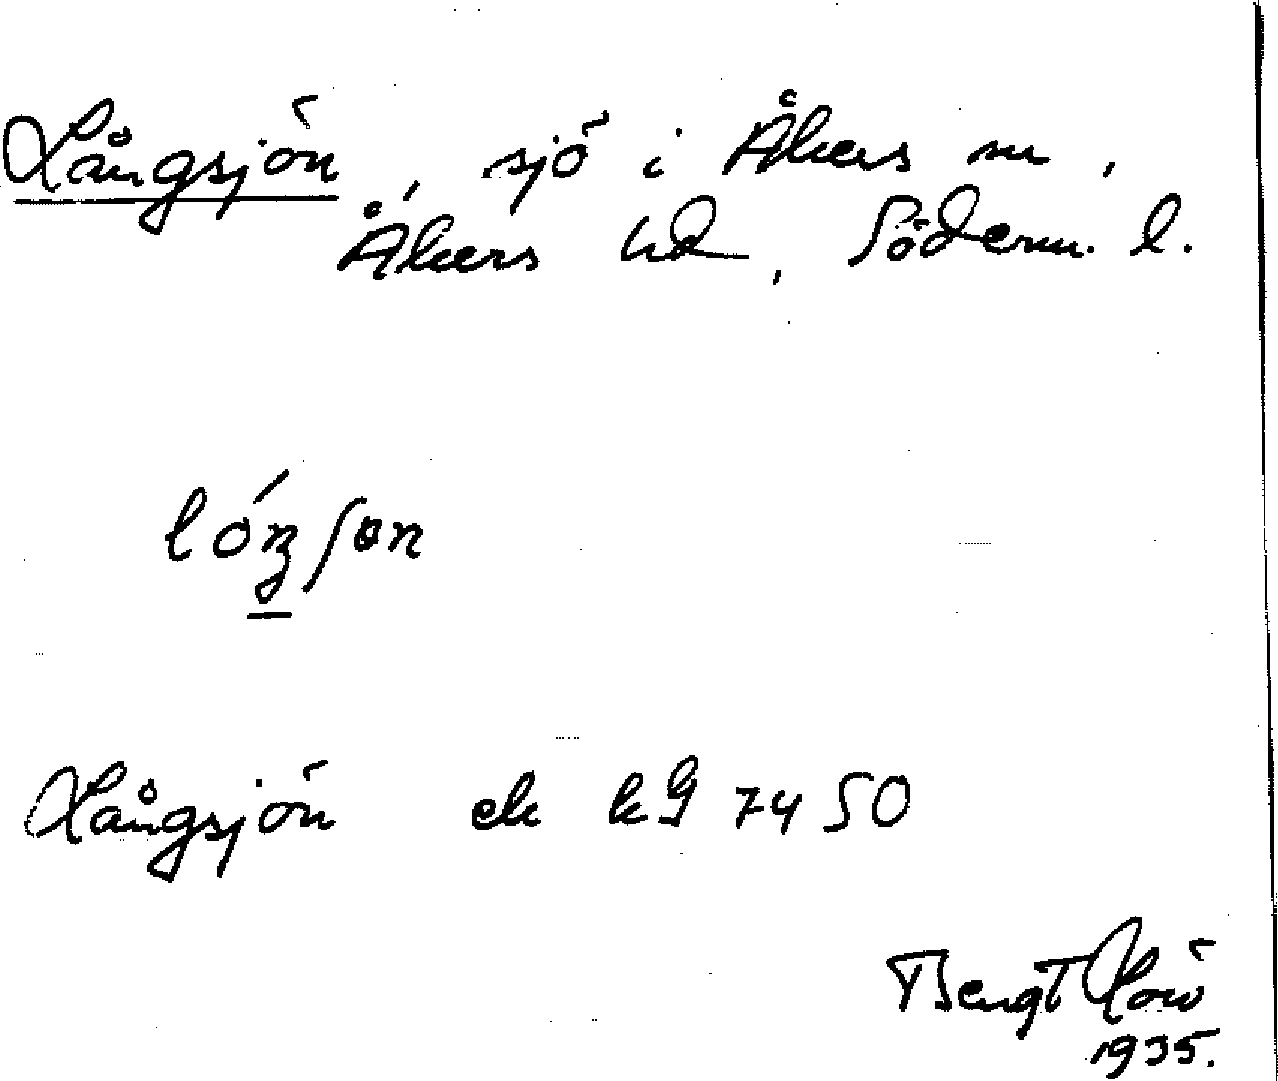 Långsjön, sjö i Åkers sn,
Åkers hd, Söderm. l.
Långsjön ek k 97450
Bengt
1935.